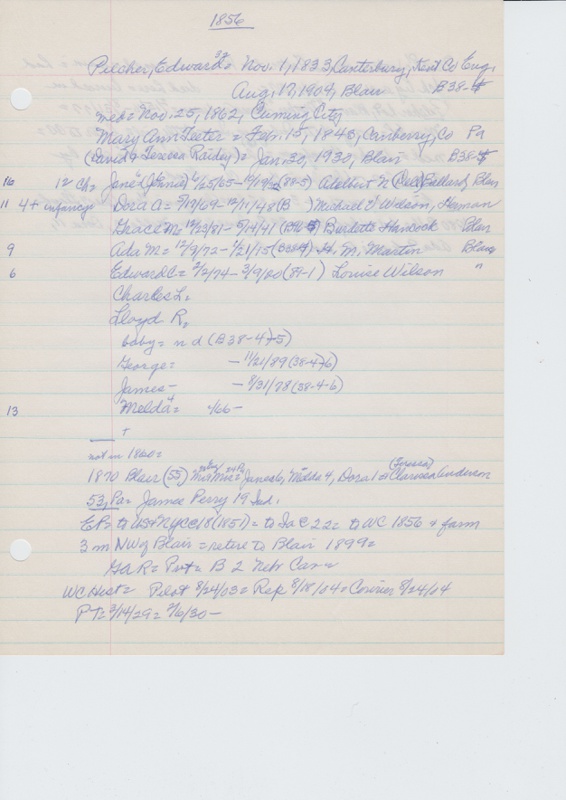 1856
Pilcher, Edward = Nov. 1, 1833, Canterbury, Kent Co Eng.
Aug. 17, 1909, Blair B38-4
med = Nov. 25, 1862, Cuming City
Mary Ann Teeter = Feb. 15, 1848, Canberry, Co Pa
(David & Teresea Raidey) = Jan 20, 1930, Blair B38-4
16 12 ch = Jane (Jennie) 6/25/65 - (88-5) Adelbert N Pullard, Blair
11 4 + infancy Dora A = 5/19/69 - 12/11/48 (B ) Michael Wilson, Herman
Grace M = 12/23/81 - 5/14/41 Burdette Hancock Blair
9 Ada M = 12/9/72 - 4/21/15 H. M. Martin Blair
6 Edward C = 2/2/74 - 3/9/60 (89-1) Louise Wilson "
Charles L =
Lloyd R =
baby = n d (B38-4-5)
George = - 11/21/89 (38-4-6)
James - - 8/31/78 (38-4-6)
13 Melda 4 = 1/66 -
not in 1860 =
1870 Blair (55) Jane 6, Melda 4, Dora 1 = (Teresea) Clarissa Anderson
53, Pa = James Perry 19 Ind.
EP = to US + NYC C 18 (1851) = to Ia C 22 = to WC 1856 + farm
3 m NW of Blair = retire to Blair 1899 =
GAR = Pvt = B 2 Nebr Cav =
WC Hist = Pilot 8/24/03 = Rep 8/18/04 = Courier 8/24/04
PT = 3/14/29 = 2/6/30 -